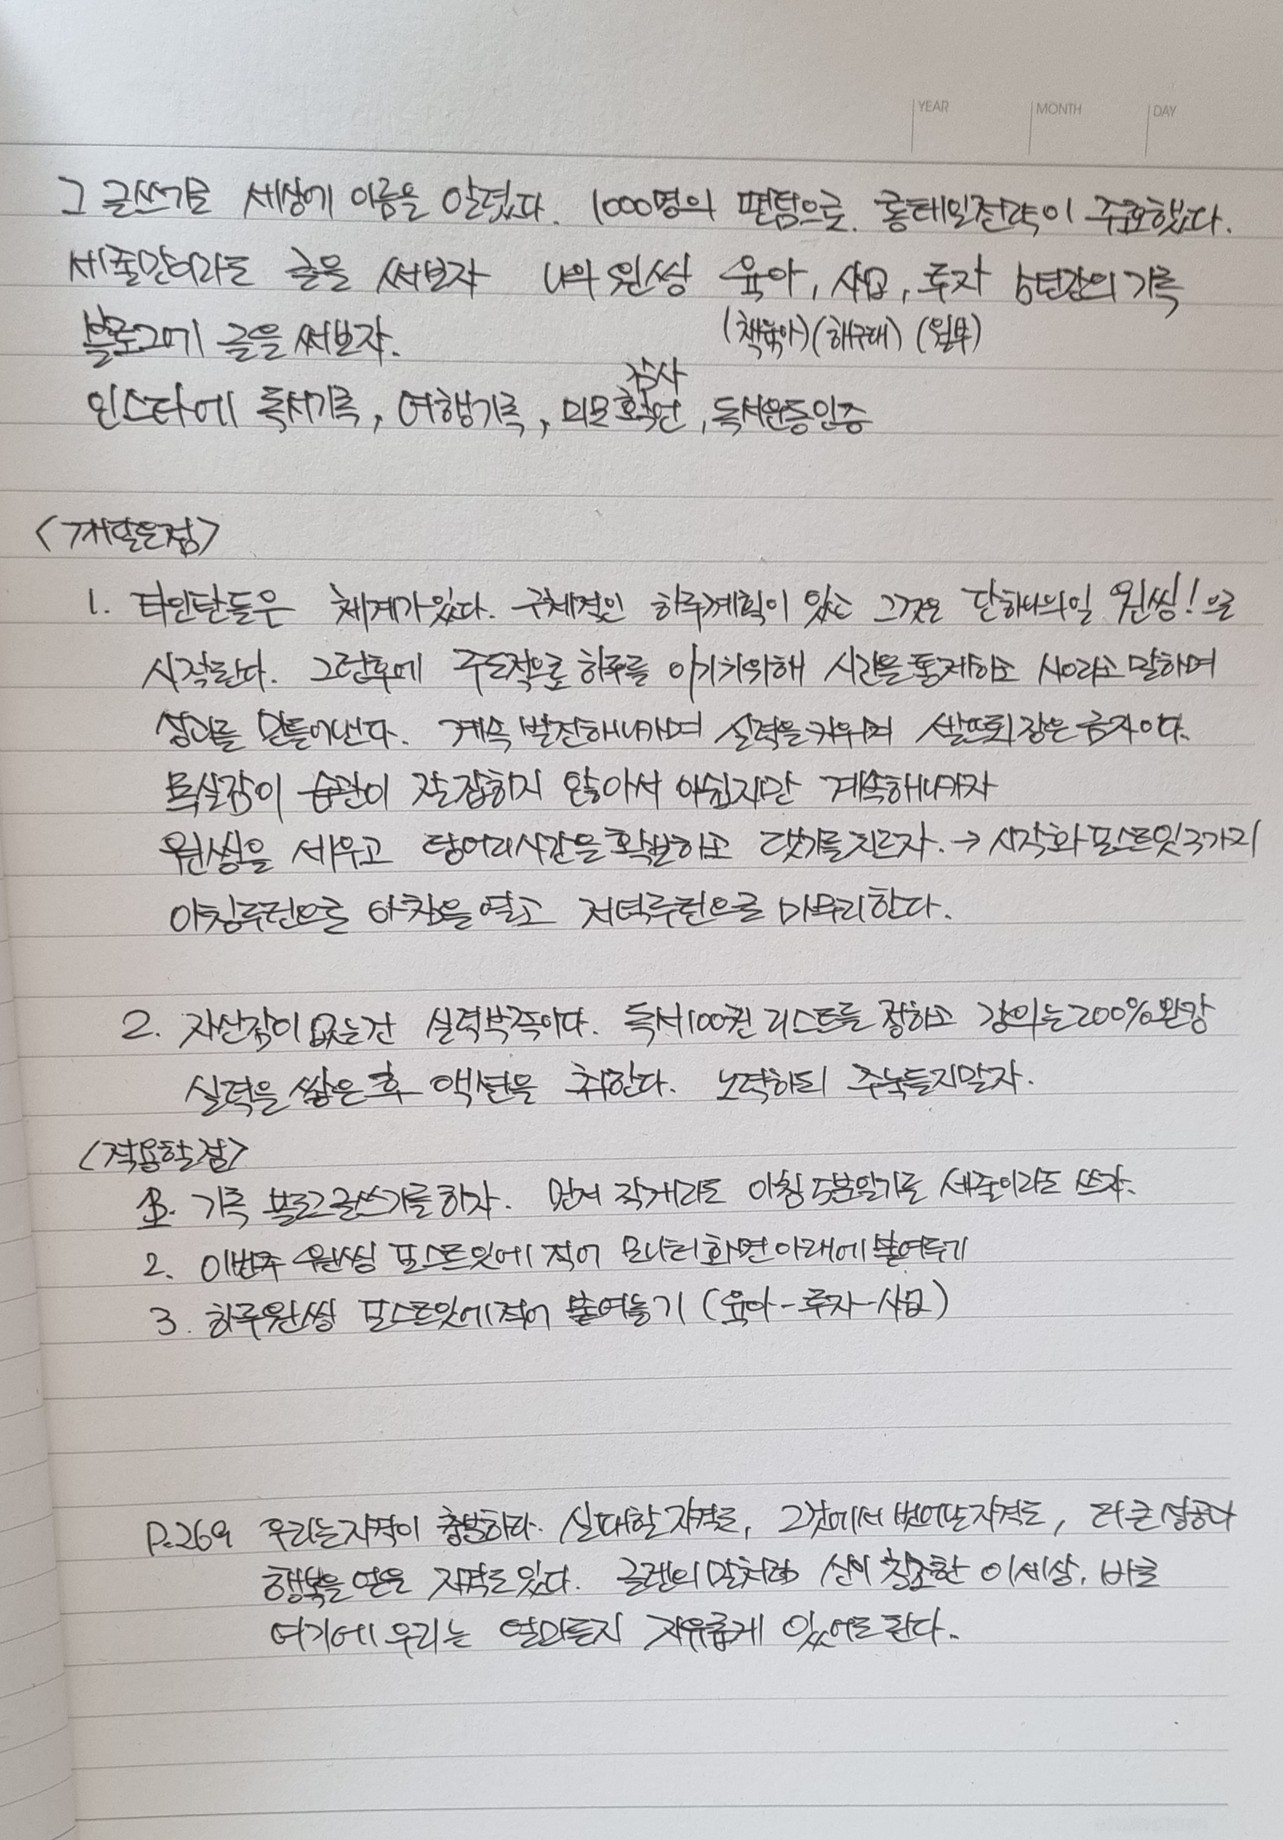 YEAR MONTH DAY
그 글쓰기로 세상에 이름을 알렸다. 1000명의 찐팀으로. 롱테일전략이 주효했다.
세줄만이라도 글을 써보자 나의 원씽 육아, 사업, 투자 5년간의 기록
(책육아) (해구대) (월부)
블로그에 글을 써보자.
감사
인스타에 독서기록, 여행기록, 미모 확언, 독서운동인증
<깨달은점>
1. 타이탄들은 체계가있다. 구체적인 하루계획이 있는 그것은 단하나의일 원씽!으로
시작한다. 그런후에 주도적으로 하루를 이기기위해 시간을통제하고 NO라고말하며
성과를 만들어낸다. 계속 발전해나가며 실력을키우며 섣부른퇴장은 금지이다.
목실감이 습관이 잘잡히지 않아서 아쉽지만 계속해나가자
원씽을 세우고 덩어리시간을확보하고 댓가를치르자. → 시각화 포스트잇3가지
아침루틴으로 아침을열고 저녁루틴으로 마무리한다.
2. 자신감이없는건 실력부족이다. 독서100권 리스트를 정하고 강의는200%완강
실력을 쌓은후 액션을 취한다. 노력하되 주눅들지말자.
<적용할점>
1. 기록 블로그글쓰기를하자. 먼저 작게라도 아침5분일기를 세줄이라도 쓰자.
2. 이번주 원씽 포스트잇에 적어 모니터화면아래에 붙여두기
3. 하루원씽 포스트잇에적어 붙여놓기 (육아-투자-사업)
P.269 우리는자격이 충분하다. 실패할자격도, 그것에서 벗어날자격도, 더큰성공과
행복을 얻을 자격도있다. 글렌의말처럼 신이 창조한 이세상, 바로
여기에 우리는 얼마든지 자유롭게 있어도된다.